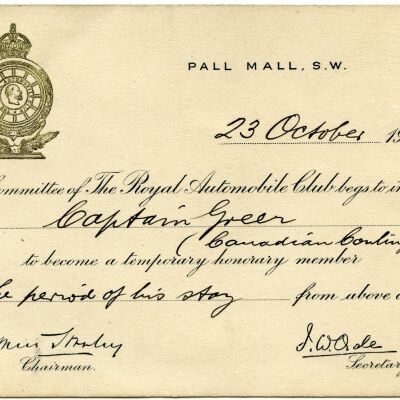 PALL MALL, S.W.
23 October 19
ommittee of The Royal Automobile Club begs to in
Captain Greer
(Canadian Conting
to become a temporary honorary member
he period of his stay from above d
Chairman. Secretary